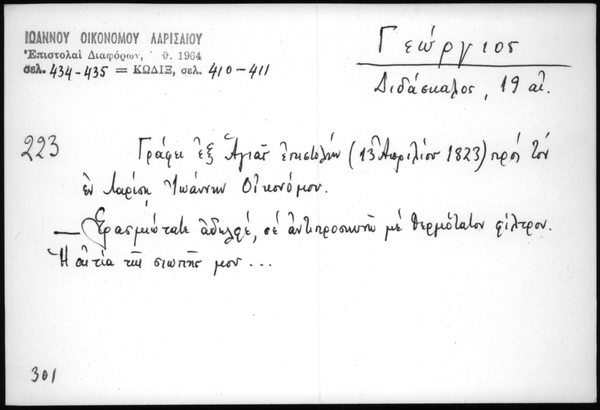 ΙΩΑΝΝΟΥ ΟΙΚΟΝΟΜΟΥ ΛΑΡΙΣΑΙΟΥ
Ἐπιστολαὶ Διαφόρων, θ. 1964
σελ. 434-435 = ΚΩΔΙΞ, σελ. 410-411
Γεώργιος
Διδάσκαλος, 19 αἰ.
223
Γράφει ἐξ Ἁγιᾶς ἐπιστολήν (13 Ἀπριλίου 1823) πρὸς τὸν
ἐν Λαρίσῃ Ἰωάννην Οἰκονόμου.
— Ἐρασμιώτατε ἀδελφέ, σὲ ἀντιπροσκυνῶ μὲ θερμότατον φίλτρον.
Ἡ αἰτία τῆς σιωπῆς μου ...
301